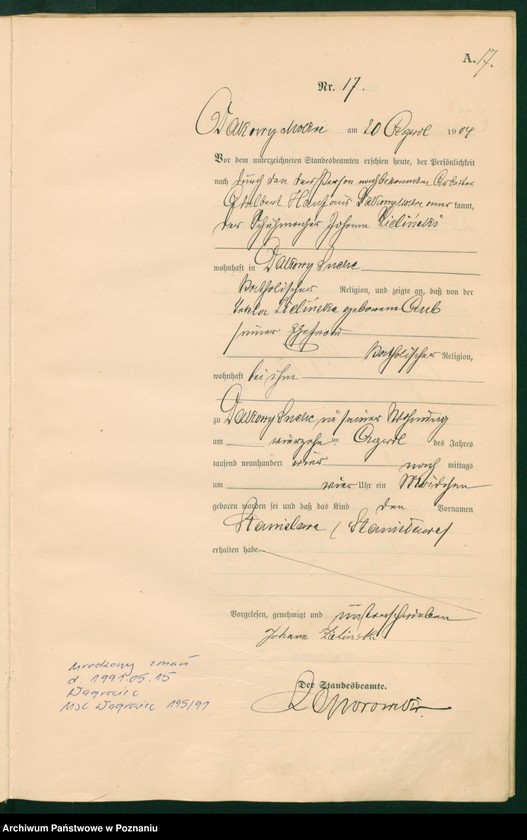 A. 17.
Nr. 17.
Dakowy Mokre am 20 April 1904
Vor dem unterzeichneten Standesbeamten erschien heute, der Persönlichkeit
nach durch den der Person nach bekannten Arbeiter
Adalbert aus Dakowy Mokre kannt,
der Johann Zieliński
wohnhaft in Dakowy Suche
katholischer Religion, und zeigte an, daß von der
Zielińska geborene
seiner Ehefrau
katholischer Religion,
wohnhaft bei ihm
zu Dakowy Suche in seiner Wohnung
am vierzehn April des Jahres
tausend neunhundert vier nach mittags
um vier Uhr ein Mädchen
geboren worden sei und daß das Kind den Vornamen
Stanislawa (Stanisława)
erhalten habe.
Vorgelesen, genehmigt und unterschrieben
Johann Zielinski
Der Standesbeamte.
urodzony zmarł
d. 1991.05.15
Wągrowiec
USC Wągrowiec 195/91
Archiwum Państwowe w Poznaniu